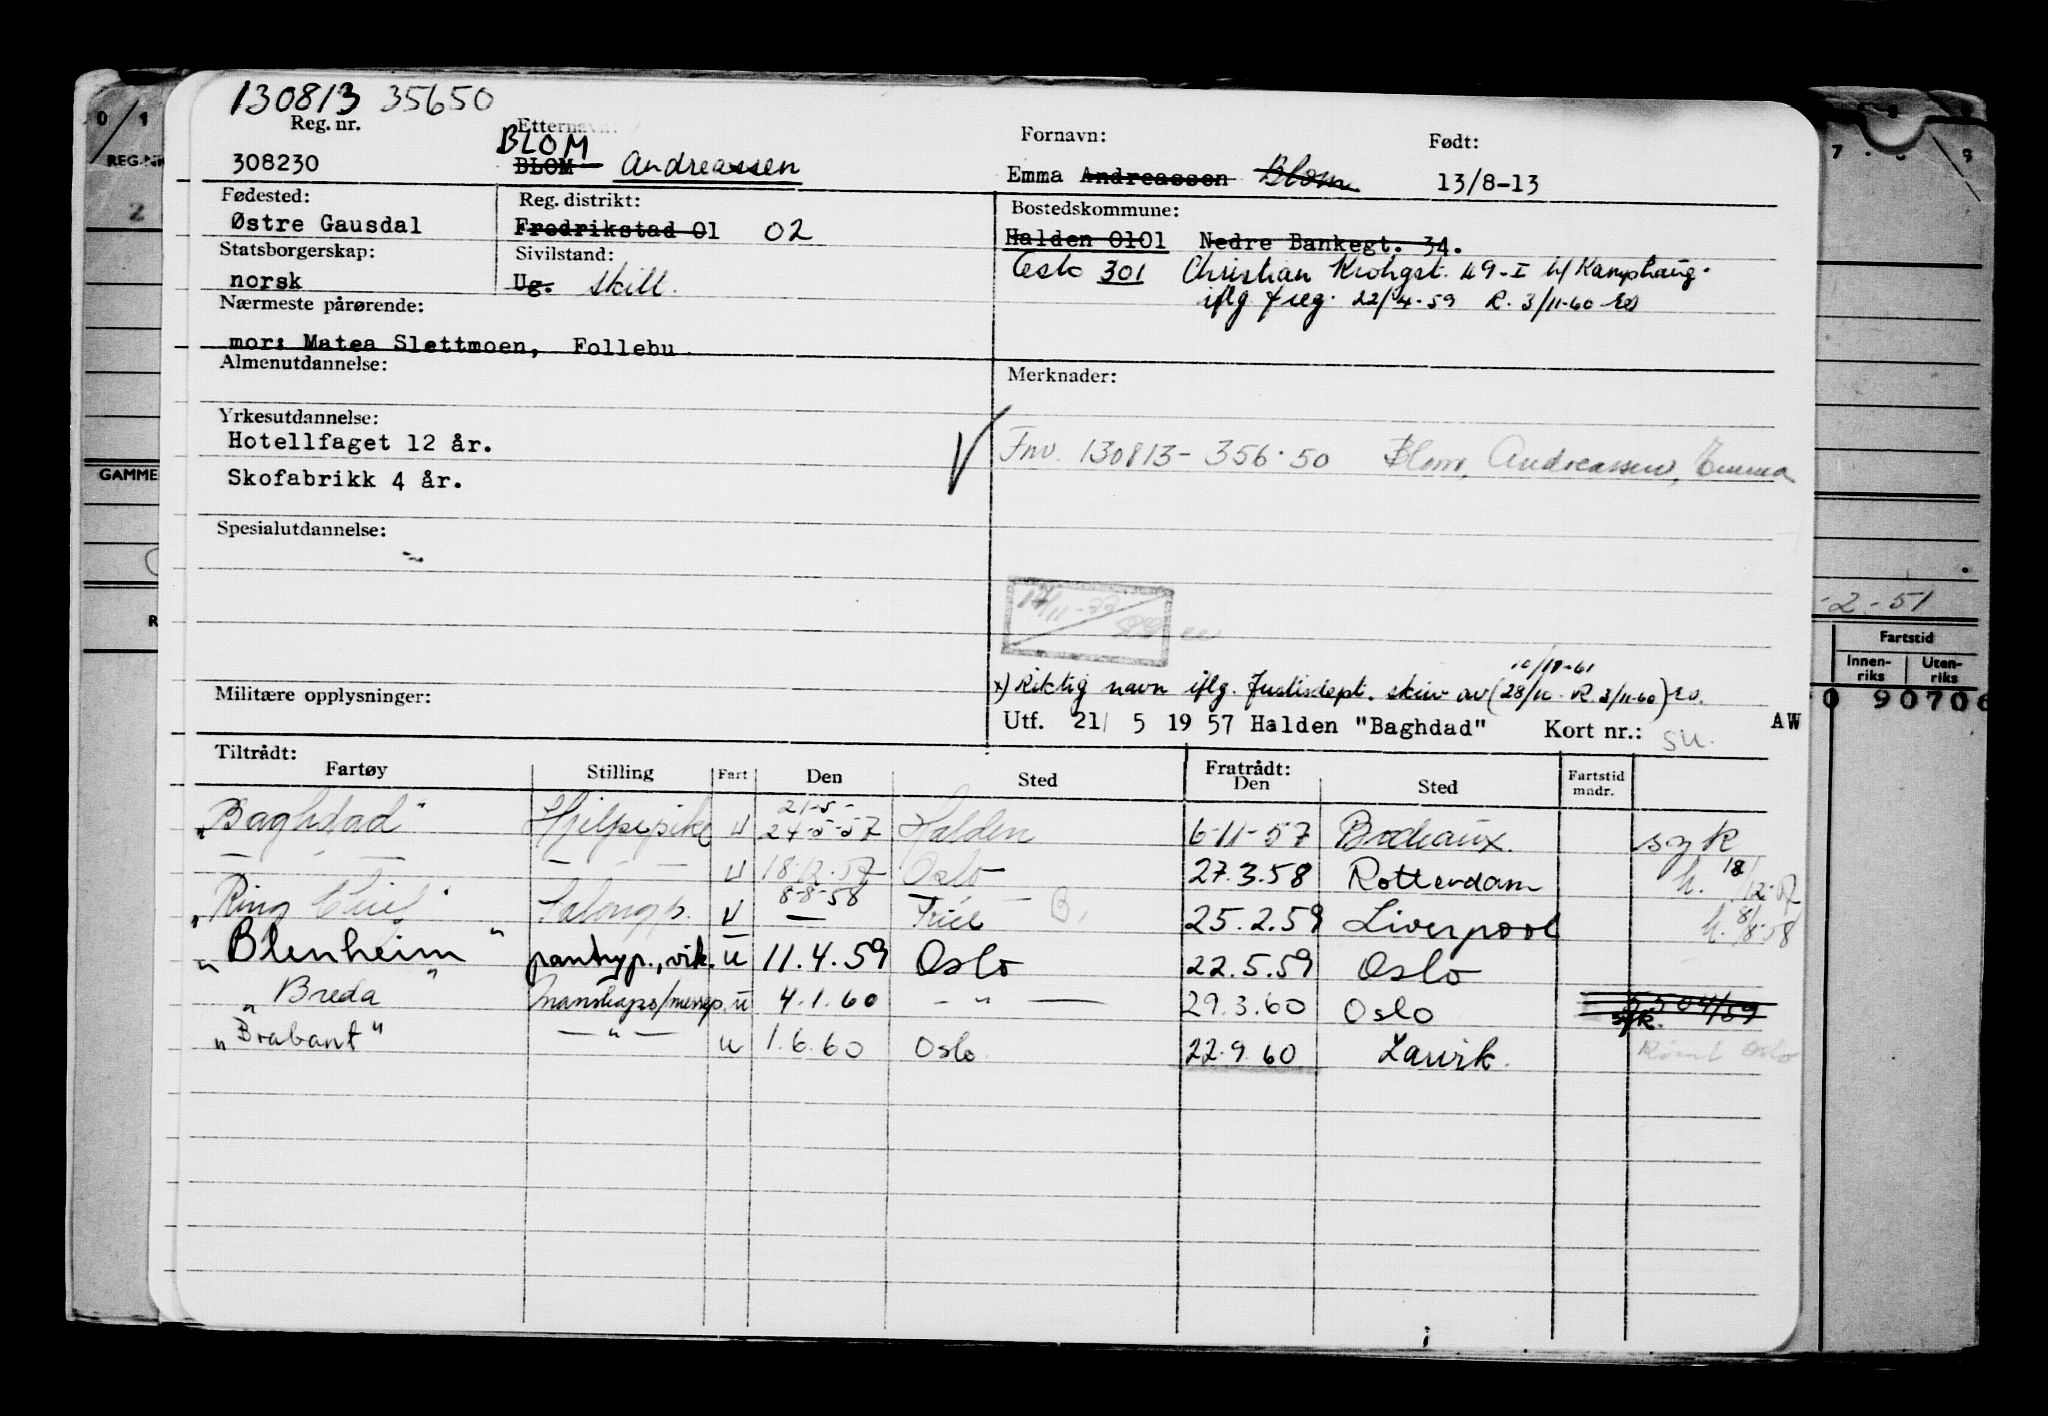 130813 35650
Reg. nr. Etternavn: Fornavn: Født:
BLOM
308230 BLOM Andreassen Emma Andreassen Blom 13/8-13
Fødested: Reg. distrikt: Bostedskommune:
Østre Gausdal Fredrikstad 01 02 Halden 0101 Nedre Bankegt. 34.
Statsborgerskap: Sivilstand: Oslo 301 Christian Krohgst. 49-I b/ Kamphaug.
norsk Ug. skilt. iflg freg. 22/4-59 R. 3/11-60
Nærmeste pårørende:
mor: Matea Slettmoen, Follebu
Almenutdannelse: Merknader:
Yrkesutdannelse:
Hotellfaget 12 år.
Fnv. 130813-356.50 Blom, Andreassen, Emma
Skofabrikk 4 år.
GAMME
Spesialutdannelse:
-2.-51
Fartstid
Innen-riks Uten-riks
0 90706
10/11-61
x) Riktig navn iflg. Justisdept. skriv av (28/10. R. 3/11-60)
Militære opplysninger:
Utf. 21/ 5 19 57 Halden "Baghdad" Kort nr.: su. AW
Tiltrådt: Fratrådt:
Fartøy Stilling Fart Den Sted Den Sted Fartstid mndr.
21-5-
"Baghdad" Hjelpepike U 24-5-57 Halden 6-11-57 Bordeaux. syk
— " — — " — U 18.12.57 Oslo 27.3.58 Rotterdam h. 18/12-
8-8-58
"Ring Chief" Salongp. U — 25.2.59 Liverpool h. 8/8-58
"Blenheim" pantryp., vik. u 11.4.59 Oslo 22.5.59 Oslo
"Breda" Mannskaps/messep. u 4.1.60 — " — 29.3.60 Oslo
"Brabant" — " — u 1.6.60 Oslo 22.9.60 Larvik.